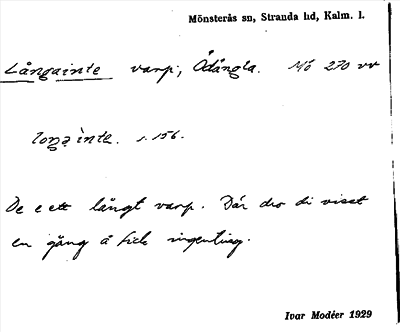 Mönsterås sn, Stranda hd, Kalm. l.
Långainte varp, Ödängla. Mö 270 vv
longa inte. 1.156.
De e ett långt varp. Där dro di visst
en gång å fick ingenting.
Ivar Modéer 1929